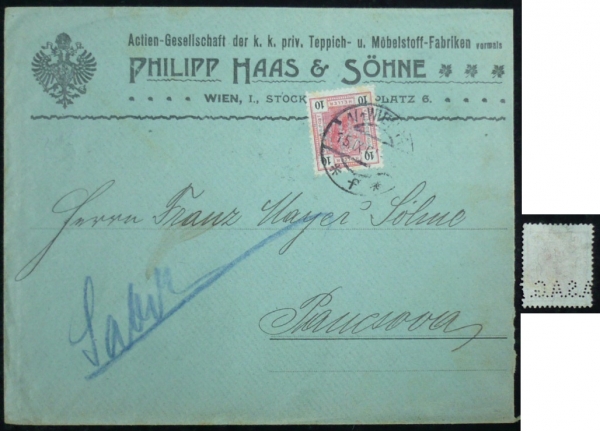 Actien-Gesellschaft der k. k. priv. Teppich- u. Möbelstoff-Fabriken vormals
PHILIPP HAAS & SÖHNE
WIEN, I., STOCK PLATZ 6.
10 10
10 10
Herrn Franz Mayer Söhne
Pancsova